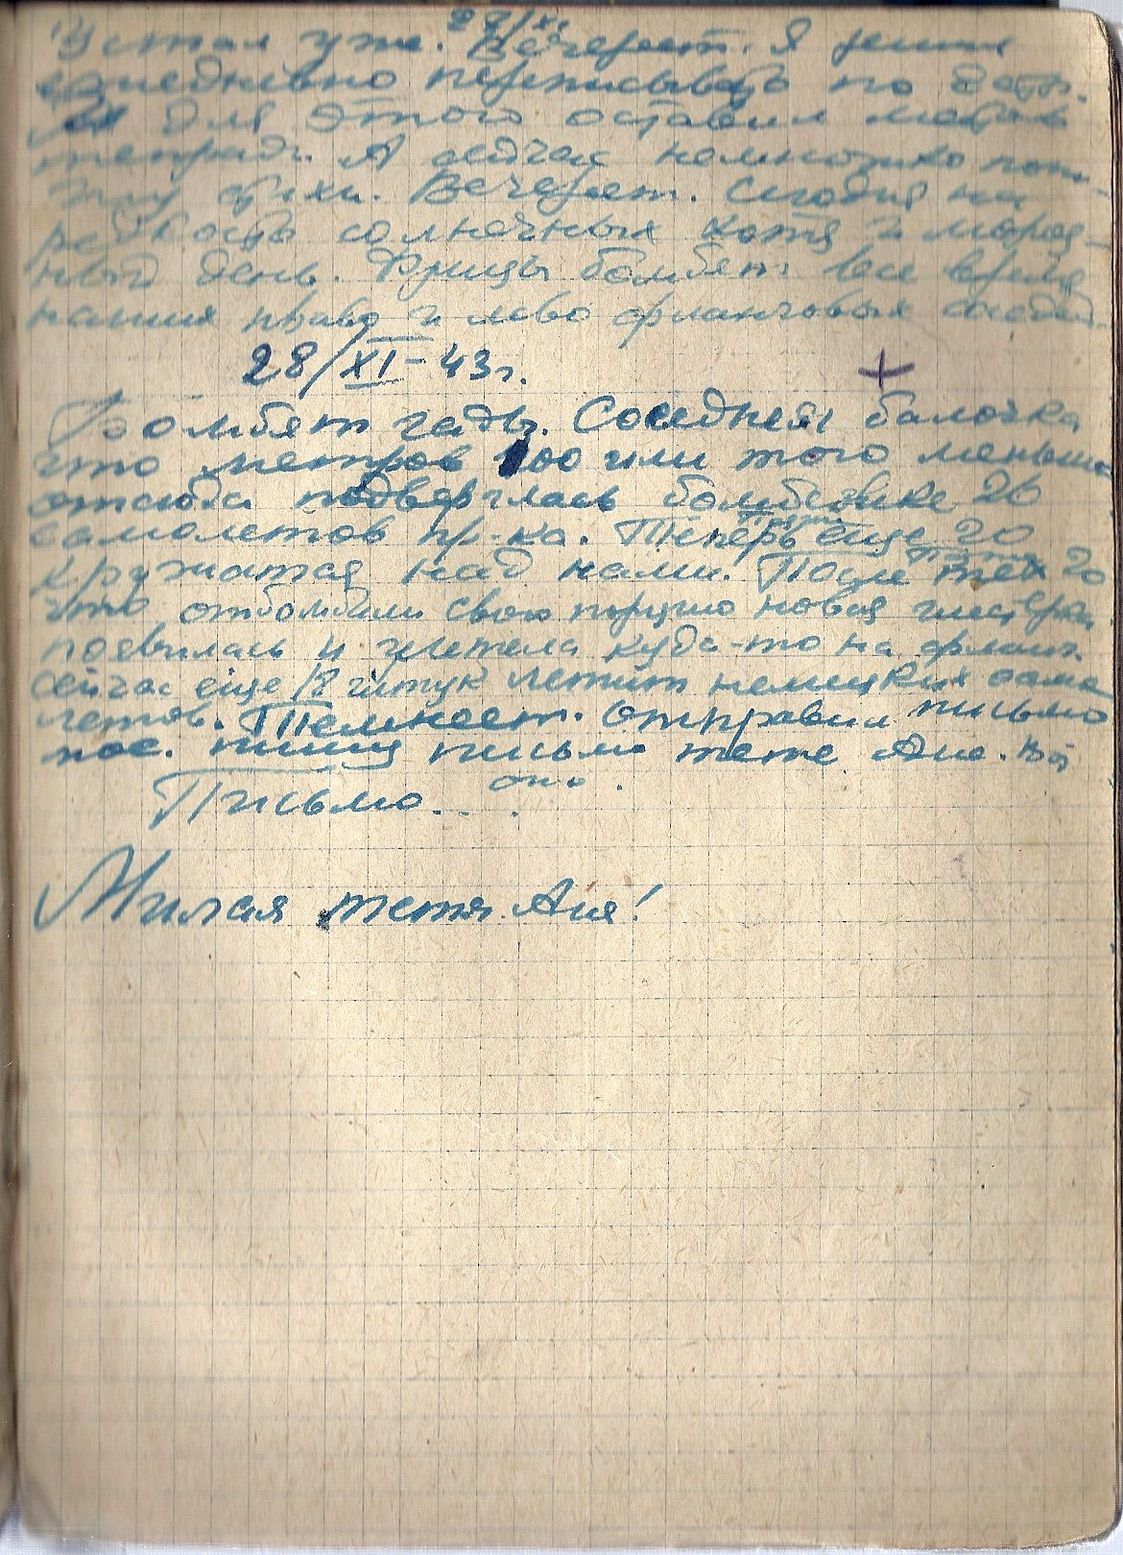 27/XI
Устал уже. Вечереет. Я решил
ежедневно переписывать по
для этого оставил
тетради. А сейчас немножко
стихи. Вечереет. Сегодня на
редкость солнечных хотя и мороз-
ный день. Фрицы бомбят все время
наших право и лево фланговых соседей.
28/XI-43г. +
Бомбят гады. Соседняя балочка
что метров 100 или того меньше
отсюда подверглась бомбежке 26
самолетов пр-ка. Теперь еще 20
кружатся над нами. После тех 20
что отбомбили свою порцию новая
появилась и улетела куда-то на фланг.
Сейчас еще 18 штук летит немецких само
летов. Темнеет. Отправил письмо
пос. пишу письмо тете Ане. Вот
оно.
Письмо...
Милая тетя Аня!